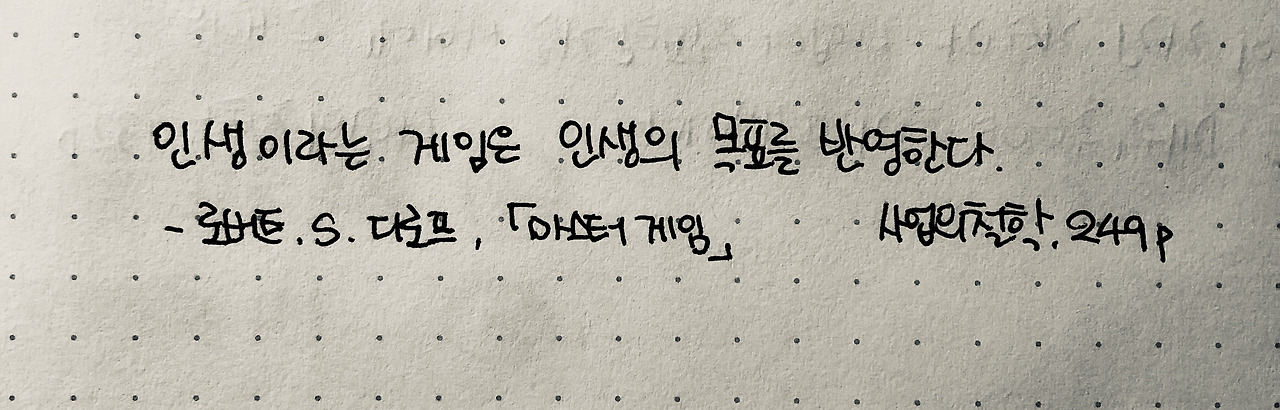 인생이라는 게임은 인생의 목표를 반영한다.
- 로버트.S.다로프,「마스터 게임」 사업의철학. 249p